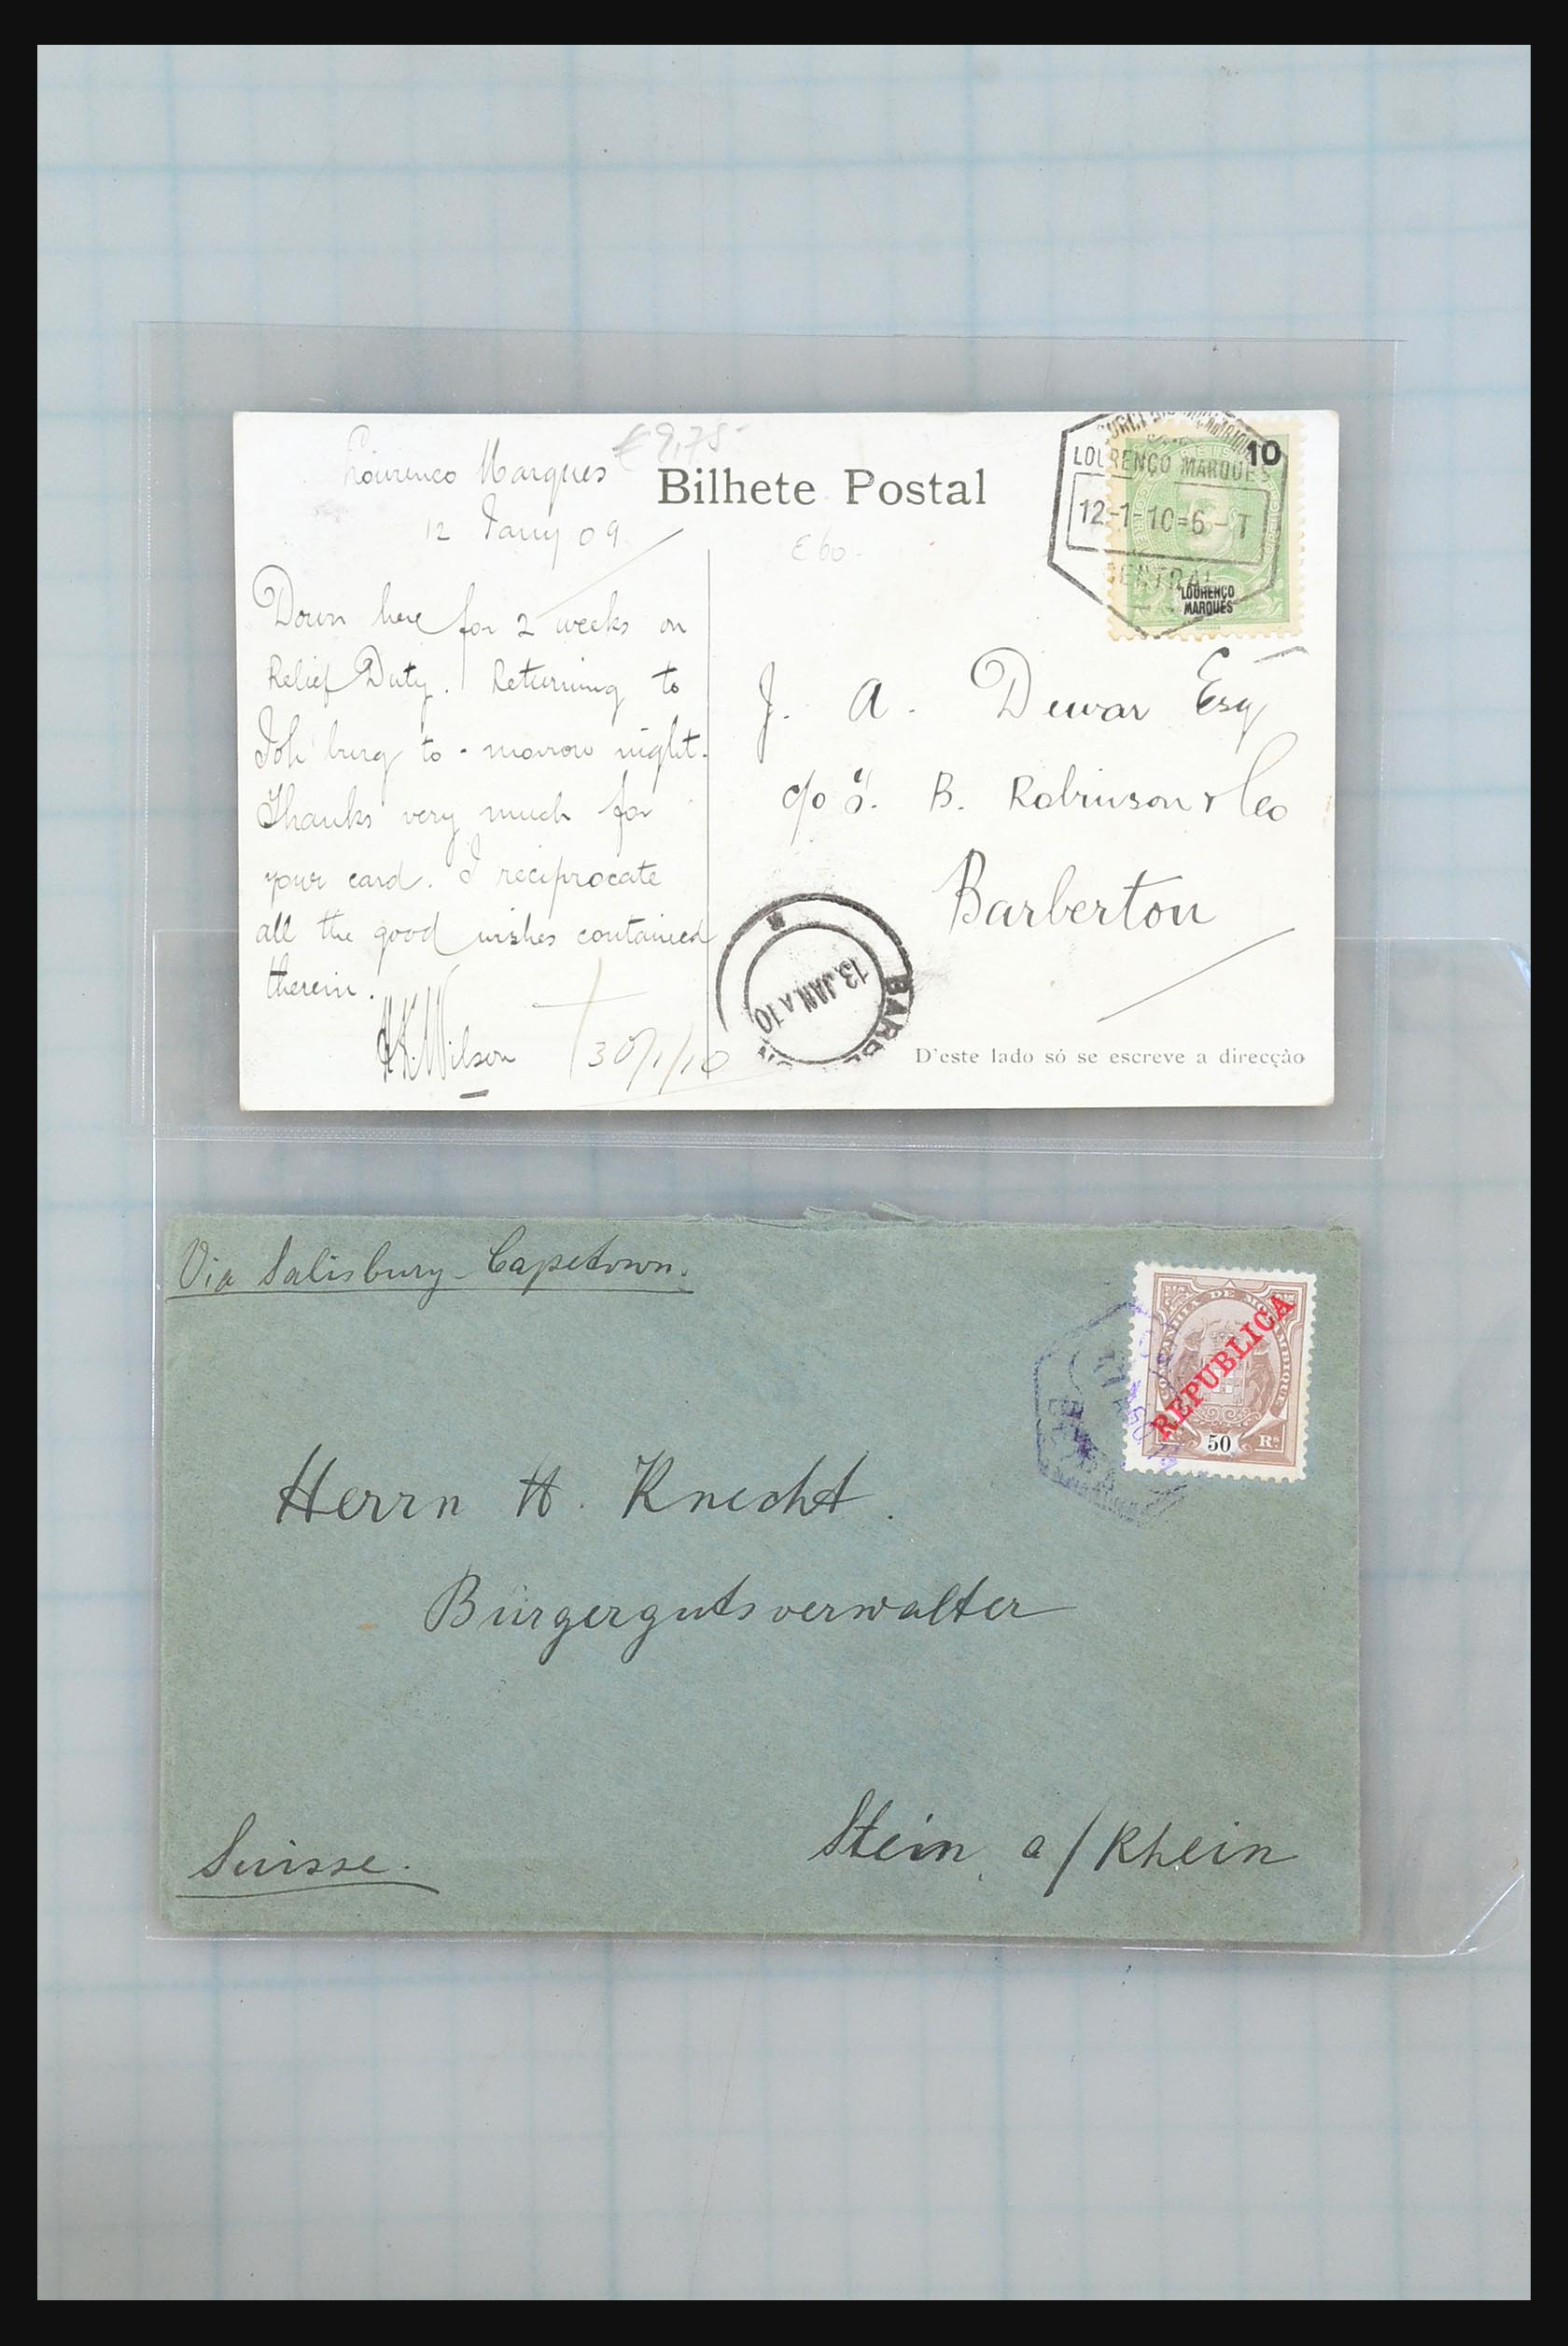 Lourenco Marques
€9,75-
12 Jany 09
Bilhete Postal
€60-
LOURENÇO MARQUES
12-1-10=6-T
CENTRAL
10
LOURENÇO
MARQUES
Down here for 2 weeks on
Relief Duty. Returning to
Joh'burg to-morrow night.
Thanks very much for
your card. I reciprocate
all the good wishes contained
therein.
Wilson
30/1/10
J. A. Dewar Esq
c/o S. B. Robinson & Co
Barberton
13 JAN. A 10
D'este lado só se escreve a direcção
Via Salisbury-Capetown.
COMPANHIA DE MOÇAMBIQUE
REPUBLICA
50 Rs
Herrn H. Knecht.
Bürgergutsverwalter
Stein a/Rhein
Suisse.